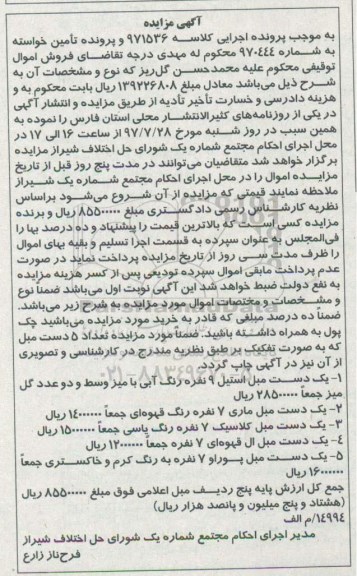 آگهی مزایده
به موجب پرونده اجرایی کلاسه ۹۷۱۵۳۶ و پرونده تأمین خواسته
به شماره ۹۷۰۴۴۴ محکوم له مهدی درجه تقاضای فروش اموال
توقیفی محکوم علیه محمدحسن گل‌ریز که نوع و مشخصات آن به
شرح ذیل می‌باشد معادل مبلغ ۱۳۹۲۲۶۸۰۸ ریال بابت محکوم به و
هزینه دادرسی و خسارت تأخیر تأدیه از طریق مزایده و انتشار آگهی
در یکی از روزنامه‌های کثیرالانتشار محلی استان فارس را نموده به
همین سبب در روز شنبه مورخ ۹۷/۷/۲۸ از ساعت ۱۶ الی ۱۷ در
محل اجرای احکام مجتمع شماره یک شورای حل اختلاف شیراز مزایده
برگزار خواهد شد متقاضیان می‌توانند در مدت پنج روز قبل از تاریخ
مزایده اموال را در محل اجرای احکام مجتمع شماره یک شیراز
ملاحظه نمایند قیمتی که مزایده از آن شروع می‌شود براساس
نظریه کارشناس رسمی دادگستری مبلغ ۸۵۵۰۰۰۰۰ ریال و برنده
مزایده کسی است که بالاترین قیمت را پیشنهاد و ده درصد بها را
فی‌المجلس به عنوان سپرده به قسمت اجرا تسلیم و بقیه بهای اموال
را ظرف مدت سی روز از تاریخ مزایده پرداخت نماید در صورت
عدم پرداخت مابقی اموال سپرده تودیعی پس از کسر هزینه مزایده
به نفع دولت ضبط خواهد شد این آگهی نوبت اول می‌باشد ضمناً نوع
و مشخصات و مختصات اموال مورد مزایده به شرح زیر می‌باشد.
ضمناً ده درصد مبلغی که قادر به خرید مورد مزایده می‌باشید چک
پول به همراه داشته باشید. ضمناً مورد مزایده تعداد ۵ دست مبل
که به صورت تفکیک برطبق نظریه مندرج در کارشناسی و تصویری
از آن نیز در آگهی چاپ گردد.
۱- یک دست مبل استیل ۹ نفره رنگ آبی با میز وسط و دو عدد گل
میز جمعاً ۲۸۵۰۰۰۰۰ ریال
۲- یک دست مبل ماری ۷ نفره رنگ قهوه‌ای جمعاً ۱۴۰۰۰۰۰۰ ریال
۳- یک دست مبل کلاسیک ۷ نفره رنگ یاسی جمعاً ۱۵۰۰۰۰۰۰ ریال
۴- یک دست مبل ال قهوه‌ای ۷ نفره جمعاً ۱۲۰۰۰۰۰۰ ریال
۵- یک دست مبل پوراو ۷ نفره به رنگ کرم و خاکستری جمعاً
۱۶۰۰۰۰۰۰ ریال
جمع کل ارزش پایه پنج ردیف مبل اعلامی فوق مبلغ ۸۵۵۰۰۰۰۰ ریال
(هشتاد و پنج میلیون و پانصد هزار ریال)
۱۴۹۹۴/م الف
مدیر اجرای احکام مجتمع شماره یک شورای حل اختلاف شیراز
فرح‌ناز زارع
۰۲۱-۸۸۳۴۹۶